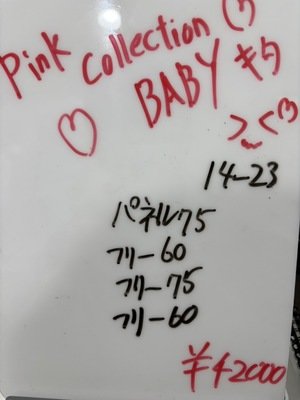 Pink Collection
BABY キラ
14-23
パネル75
フリー60
フリー75
フリー60
¥42000